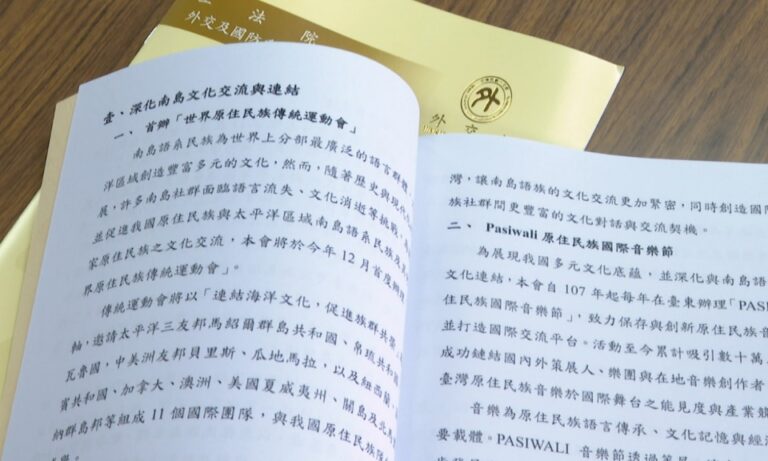 法 院
外交及國防
外 交
壹、深化南島文化交流與連結
一、 首辦「世界原住民族傳統運動會」
南島語系民族為世界上分部最廣泛的語言群體
洋區域創造豐富多元的文化，然而，隨著歷史與現代
展，許多南島社群面臨語言流失、文化消逝等挑戰，
並促進我國原住民族與太平洋區域南島語系民族及
家原住民族之文化交流，本會將於今年 12 月首度辦理
界原住民族傳統運動會」。
傳統運動會將以「連結海洋文化，促進族群共
軸，邀請太平洋三友邦馬紹爾群島共和國、帛琉共和
瓦魯國，中美洲友邦貝里斯、瓜地馬拉，以及紐西蘭
賓共和國、加拿大、澳洲、美國夏威夷州、關島及北
納群島邦等組成 11 個國際團隊，與我國原住民族
灣，讓南島語族的文化交流更加緊密，同時創造國
族社群間更豐富的文化對話與交流契機。
二、 Pasiwali 原住民族國際音樂節
為展現我國多元文化底蘊，並深化與南島語
文化連結，本會自 107 年起每年在臺東辦理「PASI
住民族國際音樂節」，致力保存與創新原住民族音
並打造國際交流平台。活動至今累計吸引數十萬
成功鏈結國內外策展人、樂團與在地音樂創作者
臺灣原住民族音樂於國際舞台之能見度與產業競
音樂為原住民族語言傳承、文化記憶與經
要載體。PASIWALI 音樂節透過策展